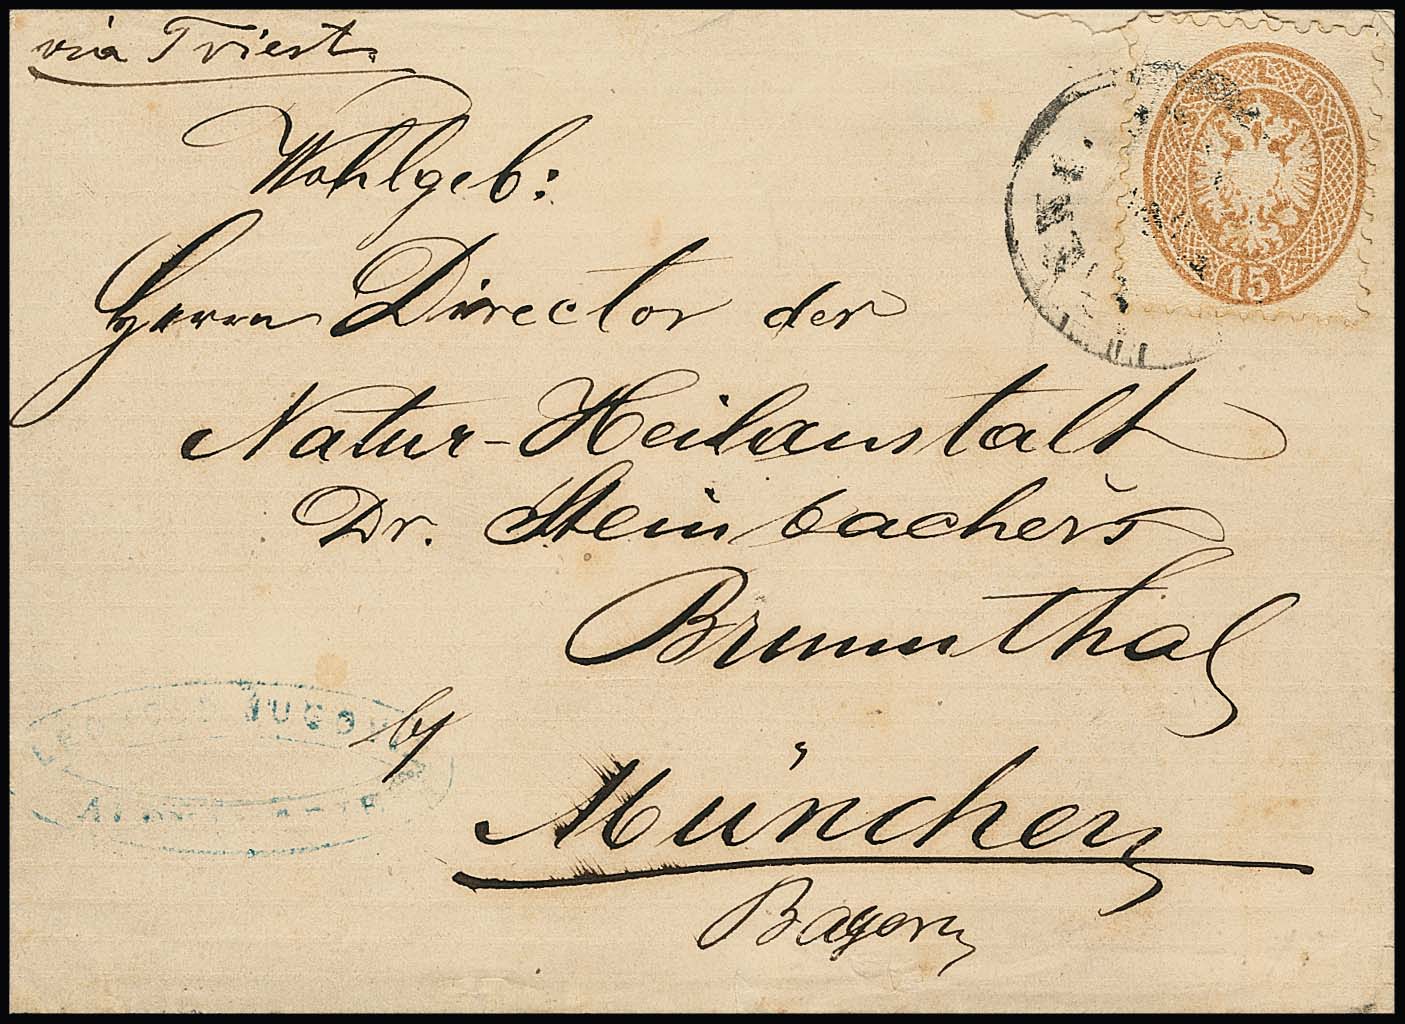 via Triest.
Wohlgeb:
Herrn Director der
Natur-Heilanstalt
Dr. Steinbachers
Brunnthal
b/
München
Bayern
15